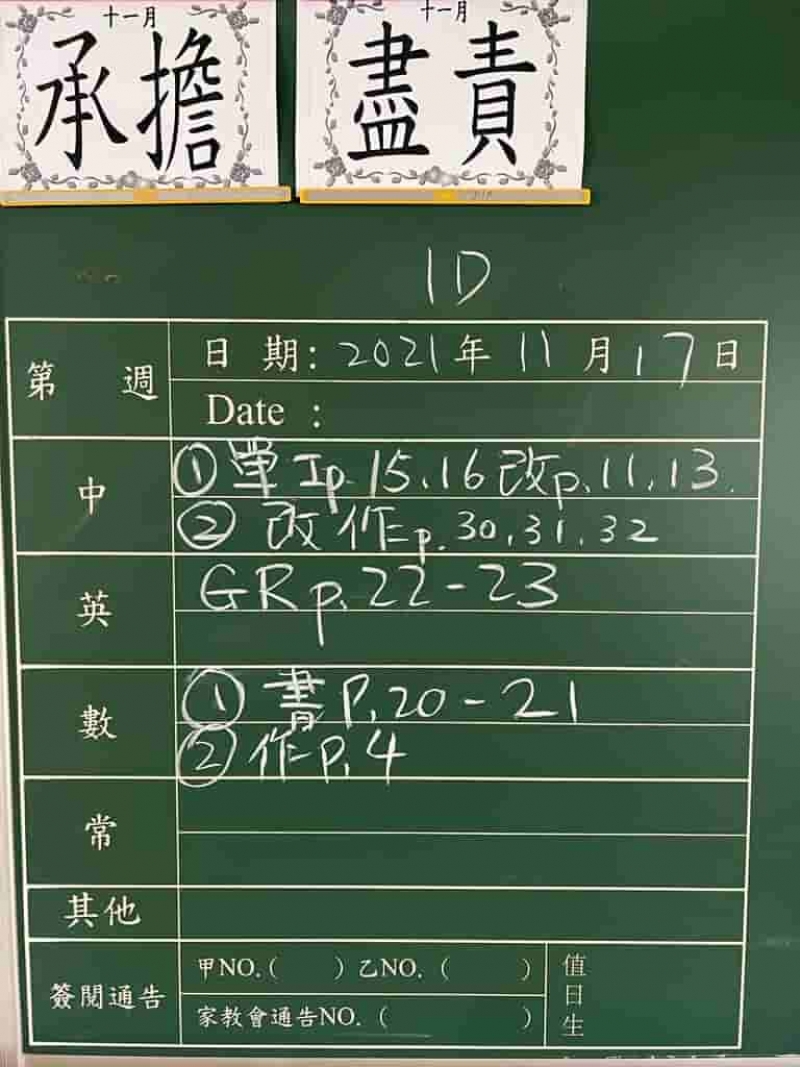 十一月
承擔
十一月
盡責
1D
第 週
日 期: 2021年 11 月 17 日
Date :
中
① 單工p.15,16 改p.11,13.
② 改作p.30,31,32
英
GR p.22-23
數
① 書 P.20-21
② 作 p.4
常
其他
簽閱通告
甲NO.( ) 乙NO. ( )
家教會通告NO. ( )
值日生